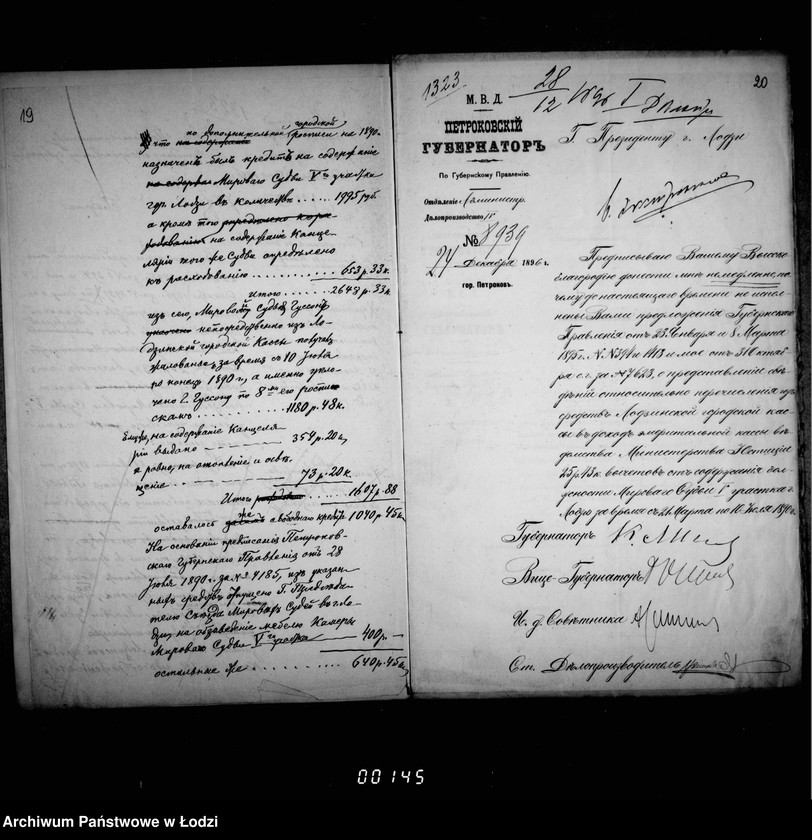 19
по дополнительной городской
что росписи на 1890 г.
назначенъ былъ кредитъ на содержаніе
Мироваго Судьи V го участка
гор. Лодзи въ количествѣ ...... 1995 руб.
а кромѣ того
на содержаніе Канце-
ляріи того же Судьи опредѣлено
къ расходованію ............ 653 р. 33 к.
Итого ........ 2648 р. 33 к.
изъ сего, Мировой Судья Гуссонъ
непосредственно изъ Ло-
дзинской городской Кассы
жалованье, за время съ 10 Іюля
по конецъ 1890 г., а именно
чено Г. Гуссону по 8
скамъ ............ 1180 р. 48 к.
на содержаніе Канцеля-
ріи выдано 354 р. 20 к.
и равно, на отопленіе и освѣ-
щеніе 73 р. 20 к.
Итого ...... 1607 р. 88
оставалось же свободнаго кредита 1040 р. 45 к.
На основаніи предписанія Петроков-
скаго Губернскаго Правленія отъ 28
Іюля 1890 г. за № 4185, изъ указан-
ныхъ средствъ отпущено Г. Предсѣда-
телю Съѣзда Мировыхъ Судей въ г. Ло-
дзи, на обзаведеніе мебелью Камеры
Мироваго Судьи V го участка 400 р. —
остальные же .......... 640 р. 45 к.
20
1323
28/12 1896
М. В. Д.
ПЕТРОКОВСКІЙ
ГУБЕРНАТОРЪ
По Губернскому Правленію.
Отдѣленіе Администр.
Дѣлопроизводство
№ 8939
24 Декабря 1896 г.
гор. Петроковъ.
Г. Президенту г. Лодзи
Предписываю Вашему Высоко-
благородію донести мнѣ немедленно, по-
чему до настоящаго времени не испол-
нены Вами предложенія Губернскаго
Правленія отъ 23 Января и 8 Марта
1895 г. и мое отъ 31 Октяб-
ря с. г. за № 7623, о представленіи свѣ-
дѣній относительно перечисленія изъ
средствъ Лодзинской городской кас-
сы въ доходъ эмеритальной кассы вѣ-
домства Министерства Юстиціи
25 р. 43 к. вычетовъ отъ содержанія дол-
жности Мироваго Судьи V участка г.
Лодзи за время съ 21 Марта по 10 Іюля 1890 г.
Губернаторъ
Вице-Губернаторъ
И. д. Совѣтника
Ст. Дѣлопроизводитель
00145
Archiwum Państwowe w Łodzi